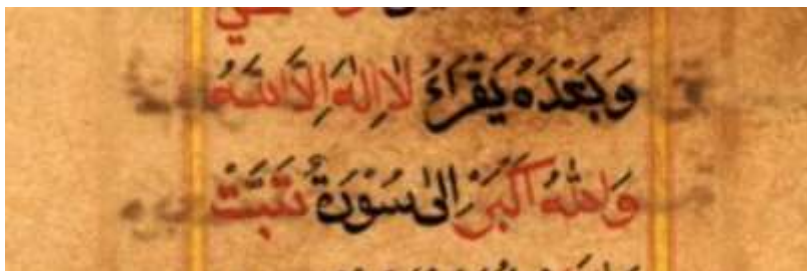 وَبَعْدَهُ يَقْرَاءُ لَا اِلٰهَ اِلَّا اللّٰهُ
وَاللّٰهُ اَكْبَرْ اِلٰى سُوْرَةْ تَبَّتْ